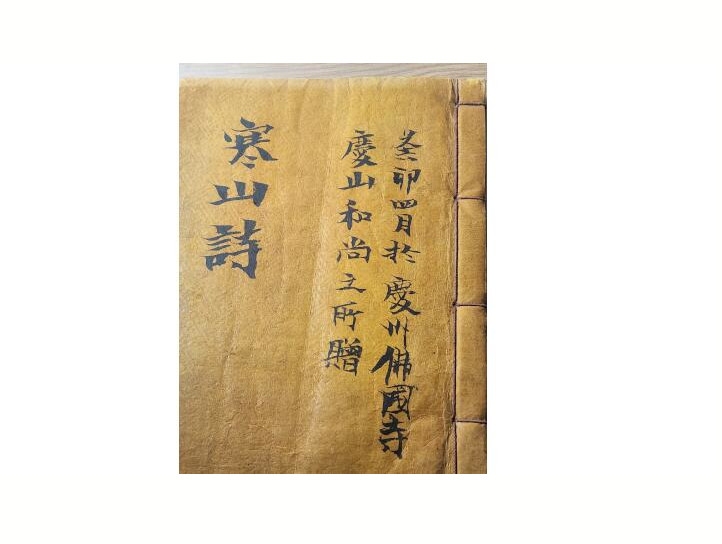 癸卯四月於慶州佛國寺
慶山和尚之所贈
寒山詩